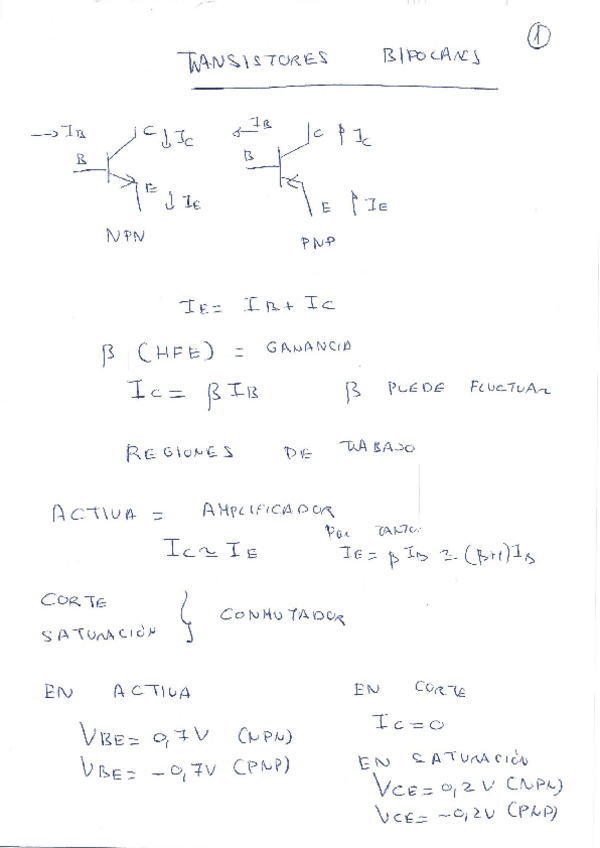 1
TRANSISTORES BIPOLARES
→ IB C ↓ IC ← IB C ↑ IC
B B
E ↓ IE E ↑ IE
NPN PNP
IE = IB + IC
β (HFE) = GANANCIA
IC = β IB β PUEDE FLUCTUAR
REGIONES DE TRABAJO
ACTIVA = AMPLIFICADOR
POR TANTO:
IC ≃ IE IE = β IB ≃ (β+1) IB
CORTE
SATURACIÓN } CONMUTADOR
EN ACTIVA EN CORTE
VBE = 0,7V (NPN) IC = 0
VBE = -0,7V (PNP) EN SATURACIÓN
VCE = 0,2V (NPN)
VCE = -0,2V (PNP)